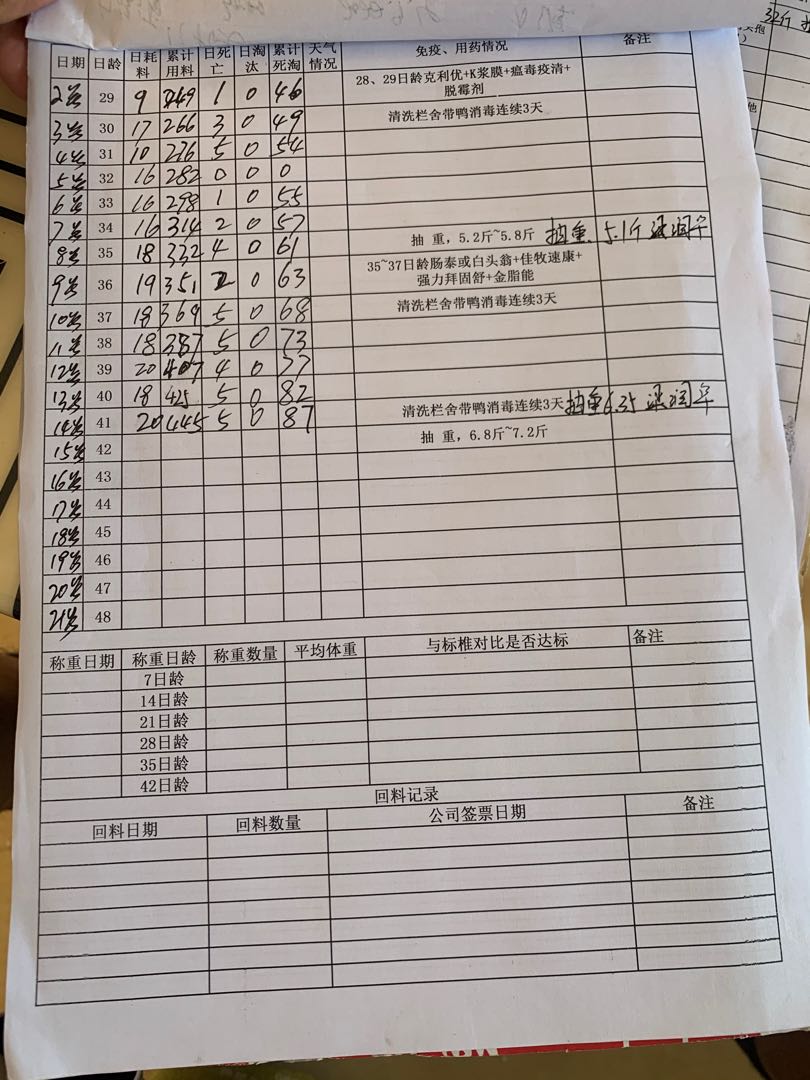 日期 日龄 日耗料 累计用料 日死亡 日淘汰 累计死淘 天气情况 免疫、用药情况 备注
2号 29 9 249 1 0 46 28、29日龄克利优+K浆膜+瘟毒疫清+
脱霉剂
3号 30 17 266 3 0 49 清洗栏舍带鸭消毒连续3天
4号 31 10 276 5 0 54
5号 32 16 282 0 0 0
6号 33 16 298 1 0 55
7号 34 16 314 2 0 57
8号 35 18 332 4 0 61 抽 重，5.2斤~5.8斤 抽重 5.1斤
9号 36 19 351 2 0 63 35~37日龄肠泰或白头翁+佳牧速康+
强力拜固舒+金脂能
10号 37 18 369 5 0 68 清洗栏舍带鸭消毒连续3天
11号 38 18 387 5 0 73
12号 39 20 407 4 0 77
13号 40 18 425 5 0 82
14号 41 20 445 5 0 87 清洗栏舍带鸭消毒连续3天 抽重6.35
15号 42 抽 重，6.8斤~7.2斤
16号 43
17号 44
18号 45
19号 46
20号 47
21号 48
称重日期 称重日龄 称重数量 平均体重 与标椎对比是否达标 备注
7日龄
14日龄
21日龄
28日龄
35日龄
42日龄
回料记录
回料日期 回料数量 公司签票日期 备注